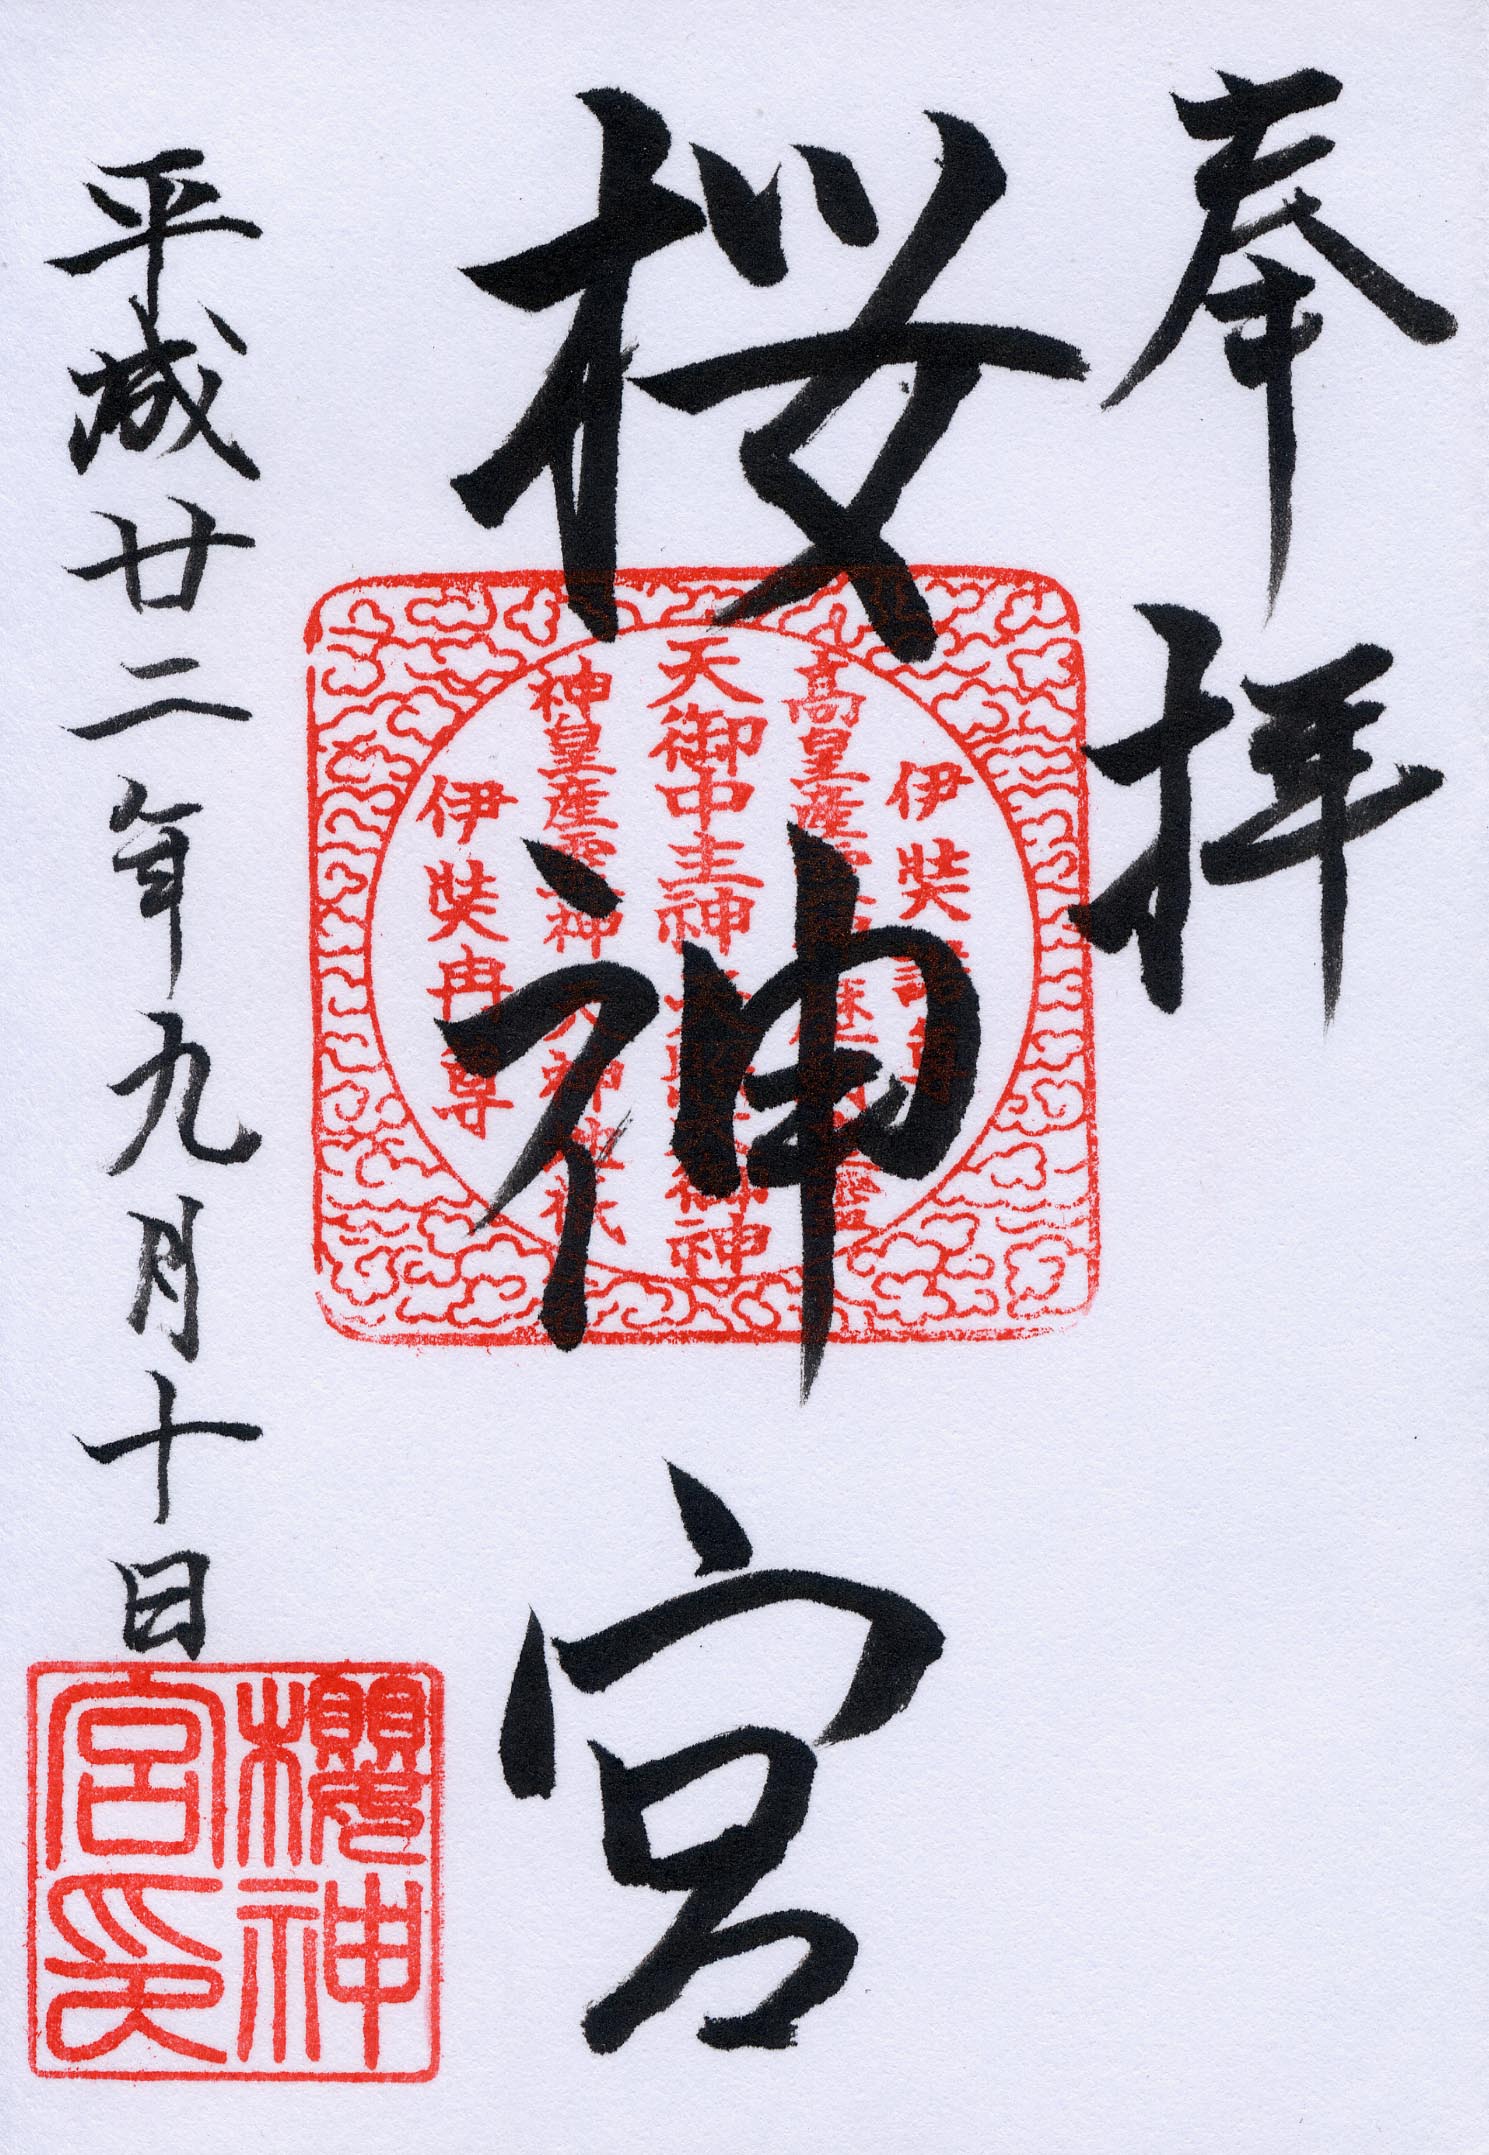 奉拝
桜神宮
伊弉諾尊
高皇産
天御中主神
神皇産霊神
伊弉冉尊
平成廿二年九月十日
櫻神
宮印